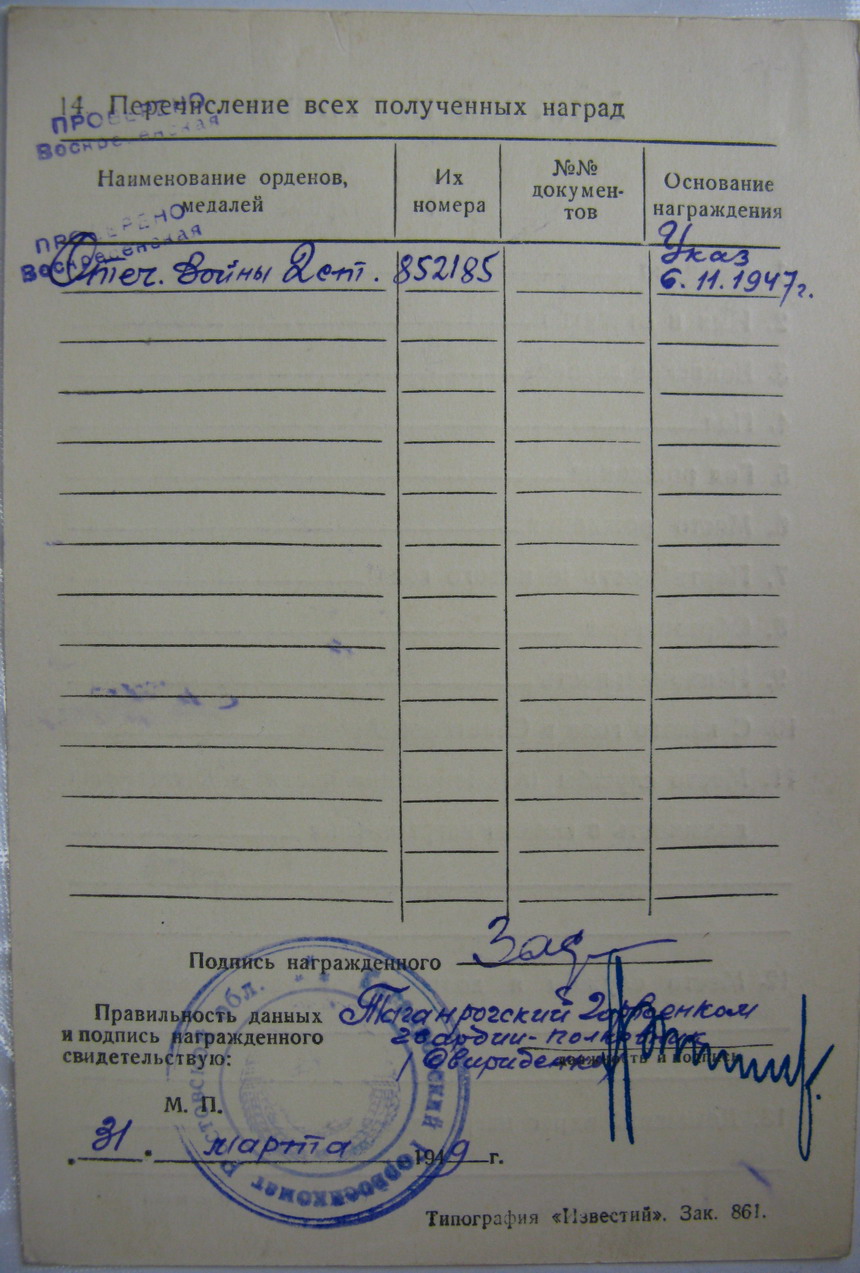 14. Перечисление всех полученных наград
ПРОВЕРЕНО
Воскресенская
Наименование орденов, медалей
Их номера
№№ документов
Основание награждения
ПРОВЕРЕНО
Воскресенская
Отеч. Войны 2 ст. 852185 Указ
6.11.1947г.
Подпись награжденного
Правильность данных Таганрогский Горвоенком
и подпись награжденного гвардии-полковник
свидетельствую: /Свириденко/
должность и подпись
М. П.
31 марта 1949 г.
Таганрогский Горвоенкомат Ростовской обл.
Типография «Известий». Зак. 861.